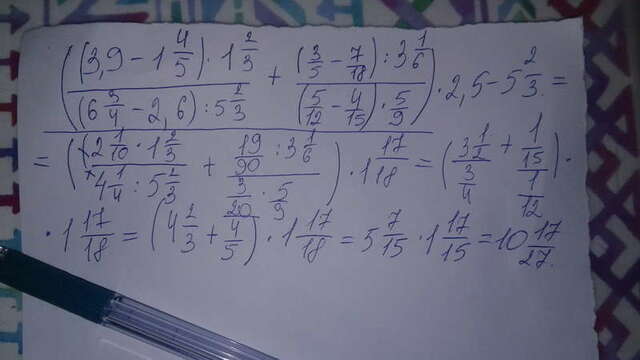 ((3,9 - 1 4/5) · 1 2/3)/((6 5/4 - 2,6) : 5 2/3) + ((2/5 - 7/18) : 3 1/6)/((5/12 - 4/15) · 5/9)) · 2,5 - 5 2/3 =
= ((2 1/10 · 1 2/3)/(4 1/4 : 5 2/3) + (19/90 : 3 1/6)/(3/20 · 5/9)) · 1 17/18 = ((3 1/2)/(3/4) + (1/15)/(1/12)) ·
· 1 17/18 = (4 2/3 + 4/5) · 1 17/18 = 5 7/15 · 1 17/15 = 10 17/27.